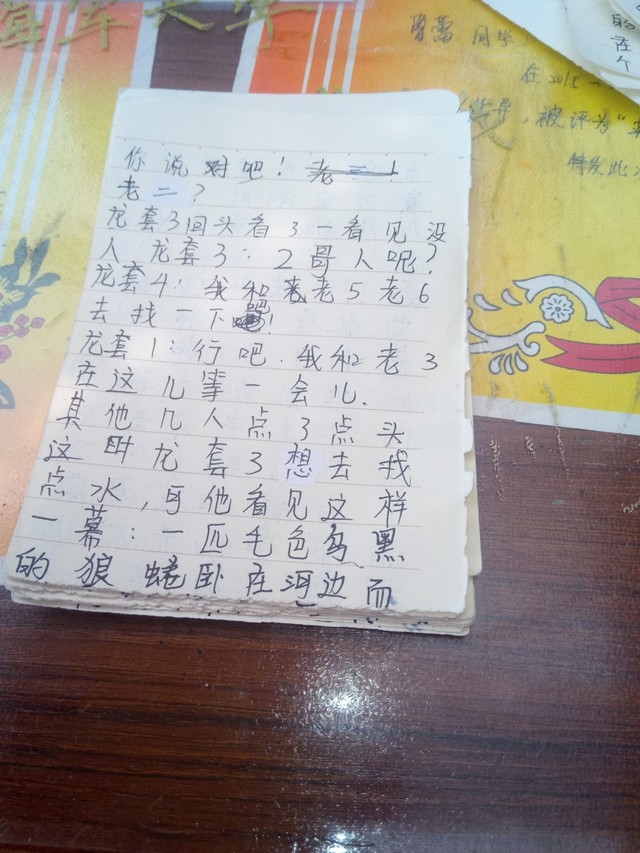 海军
肖蕾 同学
在2015
被评为"
特发此
的
在
个
你说对吧！老二！
老二？
龙套3回头看3一看见没
人 龙套3：2哥人呢？
龙套4：我和老5老6
去找一下吧！
龙套1：行吧.我和老3
在这儿等一会儿.
其他几人点了点头
这时龙套3想去找
点水，可他看见这样
一幕：一匹毛色乌黑
的狼蜷卧在河边而